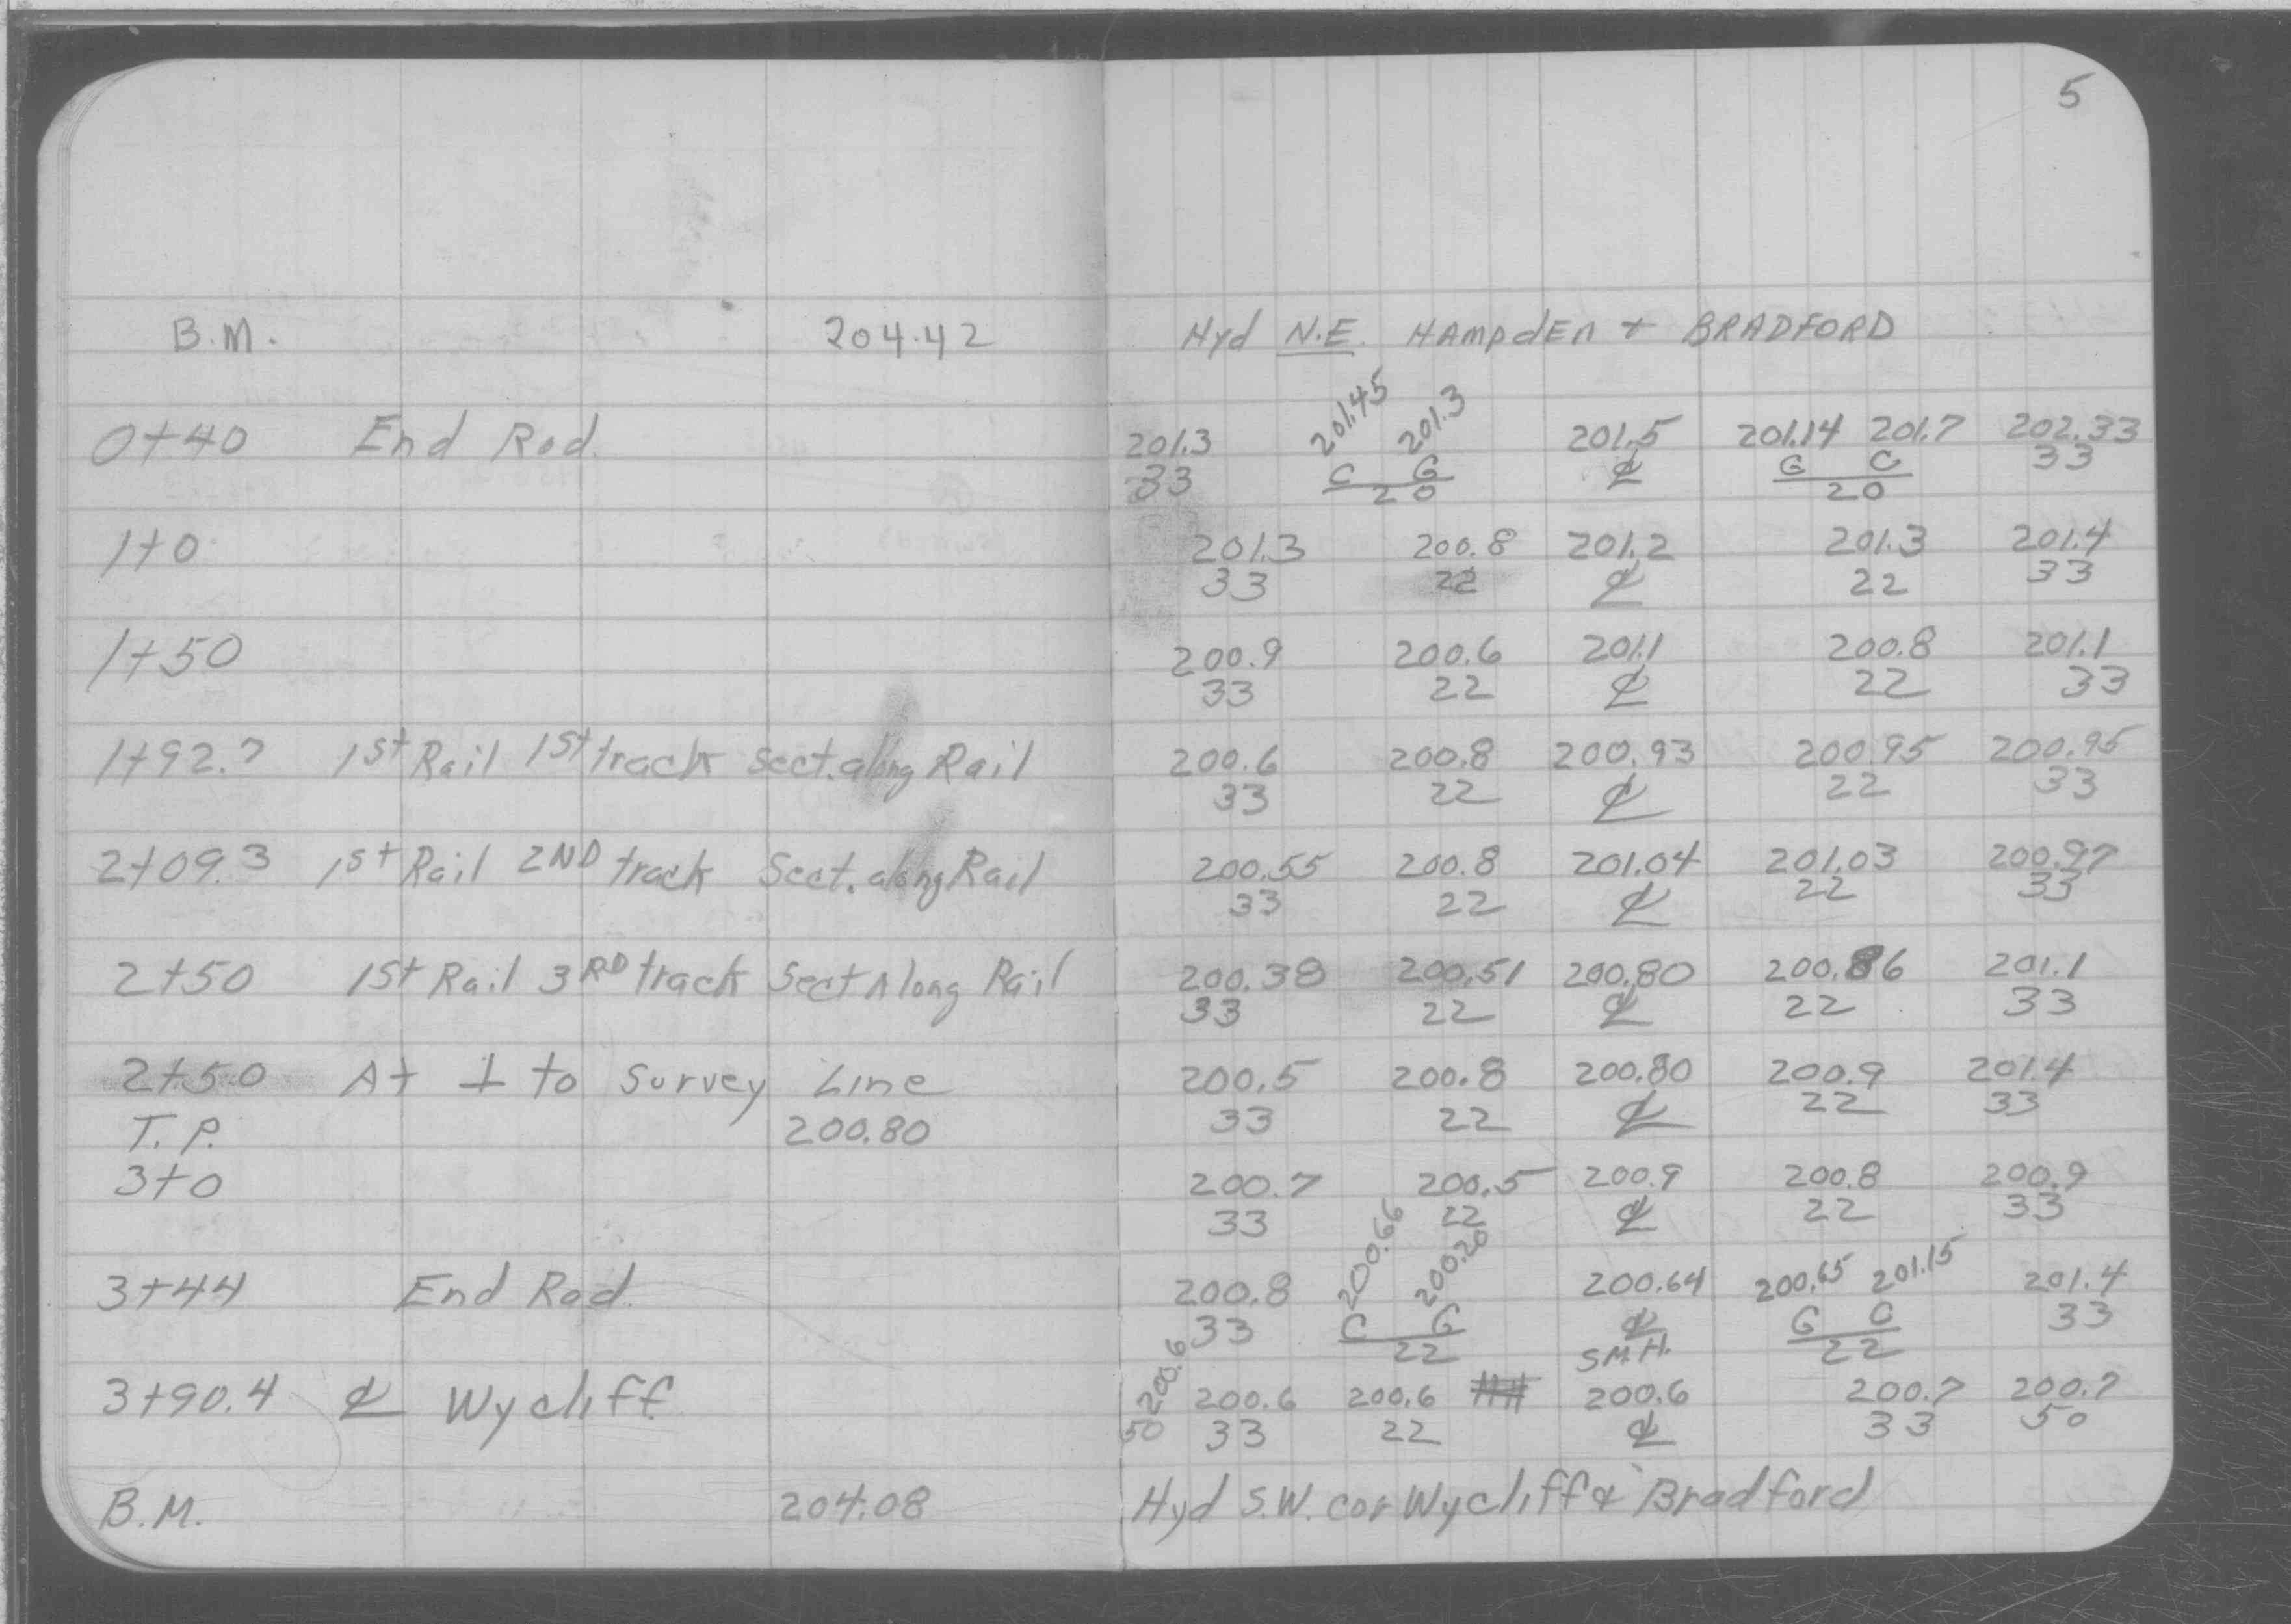 5
B.M. 204.42 Hyd N.E. HAmpdEn + BRADFORD
0+40 End Rad. 201.3 201.45 201.3 201.5 201.14 201.7 202.33
33 C G ℄ G C 33
20 20
1+0 201.3 200.8 201.2 201.3 201.4
33 22 ℄ 22 33
1+50 200.9 200.6 201.1 200.8 201.1
33 22 ℄ 22 33
1+92.7 1st Rail 1st track Sect. along Rail 200.6 200.8 200.93 200.95 200.95
33 22 ℄ 22 33
2+09.3 1st Rail 2ND track Sect. along Rail 200.55 200.8 201.04 201.03 200.97
33 22 ℄ 22 33
2+50 1st Rail 3RD track Sect Along Rail 200.38 200.51 200.80 200.86 201.1
33 22 ℄ 22 33
2+50 At ⊥ to Survey Line 200.5 200.8 200.80 200.9 201.4
T.P. 200.80 33 22 ℄ 22 33
3+0 200.7 200.5 200.9 200.8 200.9
33 22 ℄ 22 33
3+44 End Rad. 200.8 200.66 200.20 200.64 200.65 201.15 201.4
33 C G ℄ G C 33
22 S.M.H. 22
3+90.4 ℄ Wycliff 200.6 200.6 200.6 200.6 200.7 200.7
50 33 22 ℄ 33 50
B.M. 204.08 Hyd S.W. cor Wycliff & Bradford